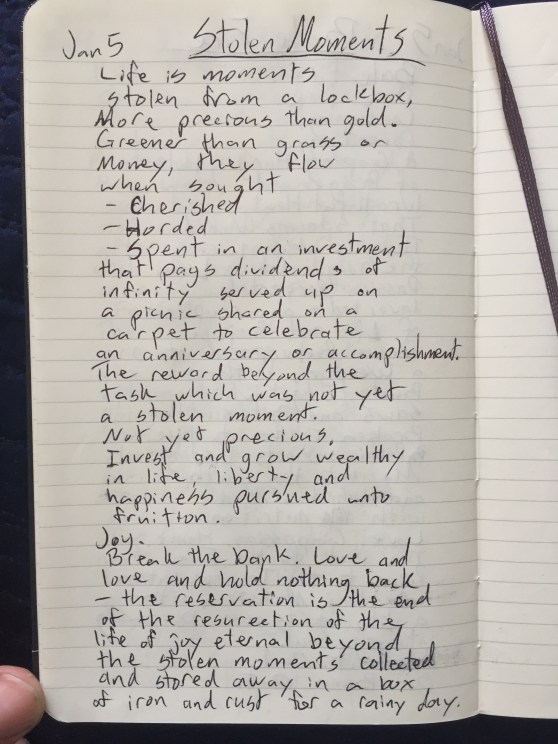 Jan 5 Stolen Moments
Life is moments
stolen from a lockbox,
More precious than gold.
Greener than grass or
Money, they flow
when sought
- Cherished
- Horded
- Spent in an investment
that pays dividends of
infinity served up on
a picnic shared on a
carpet to celebrate
an anniversary or accomplishment.
The reward beyond the
task which was not yet
a stolen moment.
Not yet precious,
Invest and grow wealthy
in life, liberty and
happiness pursued unto
fruition.
Joy.
Break the bank. Love and
love and hold nothing back
- the reservation is the end
of the resurection of the
life of joy eternal beyond
the stolen moments collected
and stored away in a box
of iron and rust for a rainy day.